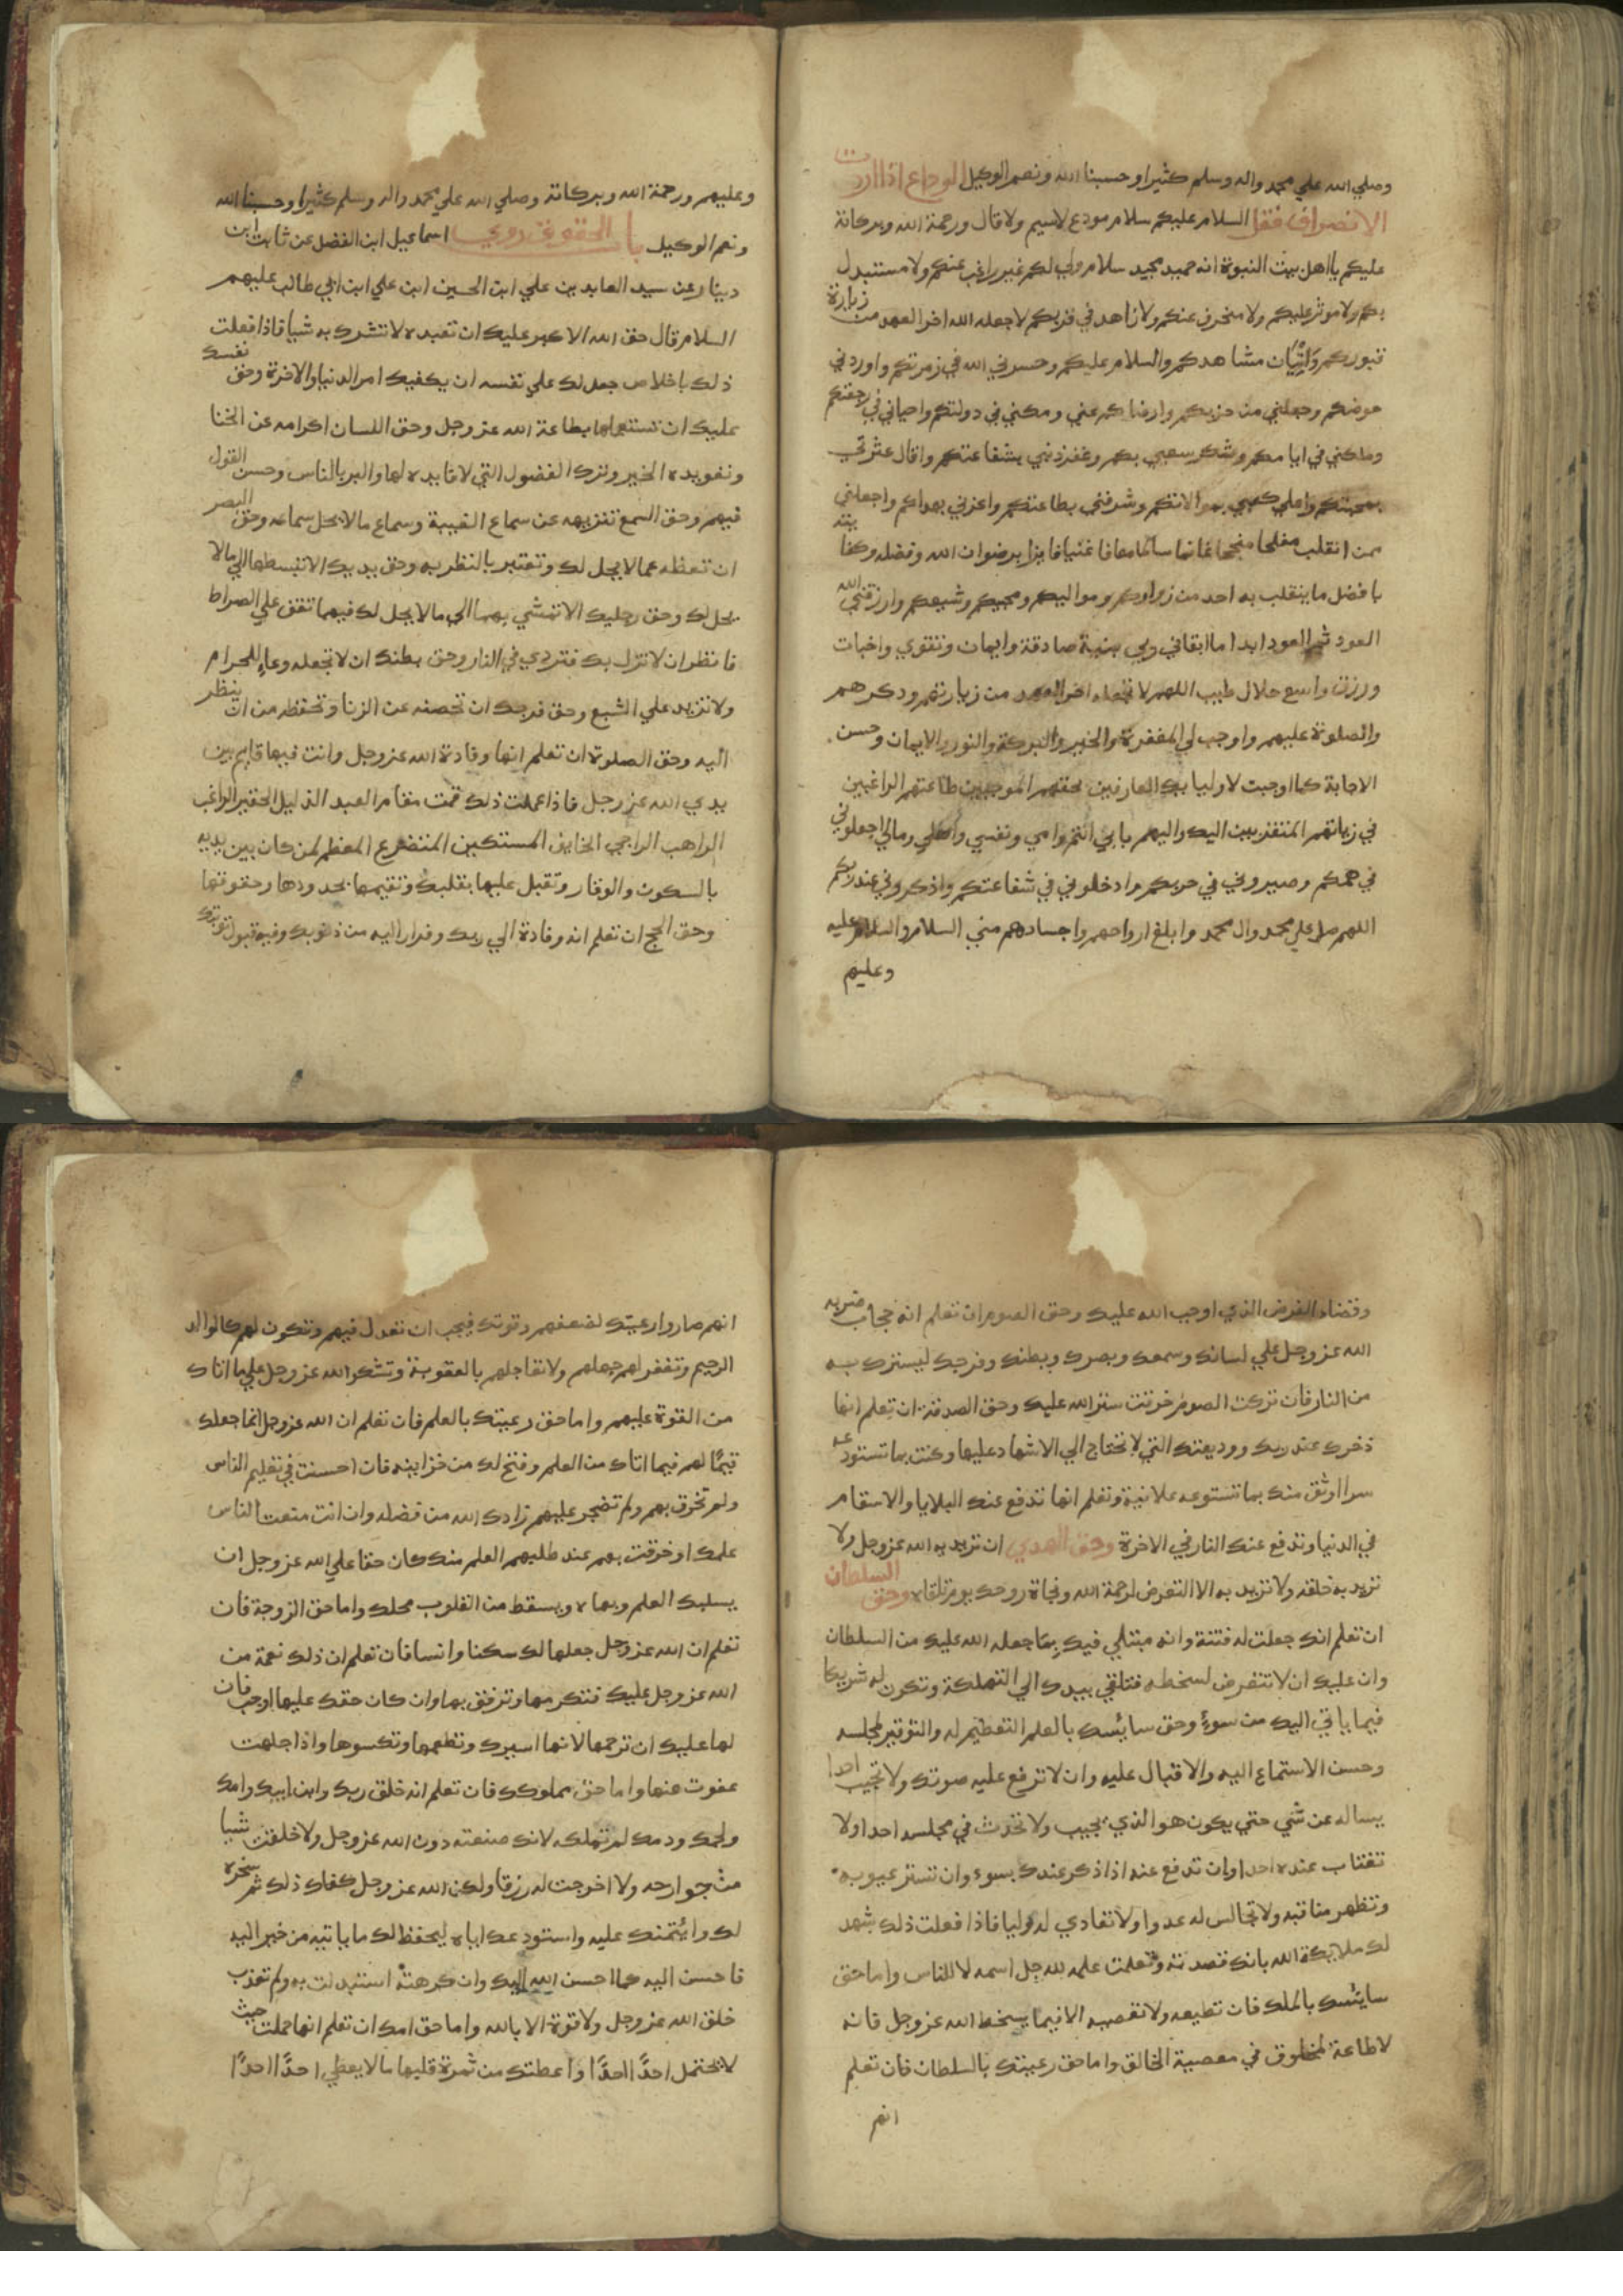 وصلي الله علي محمد واله وسلم كثيرا وحسبنا الله ونعم الوكيل الوداع اذا اردت
الانصراف فقل السلام عليكم سلام مودع لاسيم ولا قال ورحمة الله وبركاتة
عليكم يا اهل بيت النبوة انه حميد مجيد سلام ولي لكم غير راغب عنكم ولا مستبدل
بكم ولا موثر عليكم ولا منحرف عنكم ولا زاهد في قربكم لا جعله الله اخر العهد من زيارة
قبوركم واتيان مشاهدكم والسلام عليكم وحسرني الله في زمرتكم واوردني
حوضكم وجعلني من حزبكم وارضاكم عني ومكنني في دولتكم واحياني في رجعتكم
وملكني في ايامكم وشكر سعيي بكم وغفر ذنبي بشفاعتكم واقال عثرتي
بمحبتكم واعلي كعبي بموالاتكم وشرفني بطاعتكم واعزني بهداكم واجعلني
ممن انقلب مفلحا منجحا غانما سالما معافا غنيا فايزا برضوان الله وفضله وكفايته
بافضل ما ينقلب به احد من زواركم ومواليكم ومحبيكم وشيعكم وارزقني الله
العود ثم العود ابدا ما ابقاني ربي بنية صادقة وايمان وتقوي واخبات
ورزق واسع حلال طيب اللهم لا تجعله اخر العهد من زيارتهم وذكرهم
والصلوة عليهم واوجب لي المغفرة والخير والبركة والنور والايمان وحسن
الاجابة كما اوجبت لاوليايك العارفين بحقهم الموجبين طاعتهم الراغبين
في زيارتهم المتقربين اليك واليهم بابي انتم وامي ونفسي واهلي ومالي اجعلوني
في همكم وصيروني في حزبكم وادخلوني في شفاعتكم واذكروني عند ربكم
اللهم صل علي محمد وال محمد وابلغ ارواحهم واجسادهم مني السلام والسلام عليه
وعليهم
وعليهم ورحمة الله وبركاتة وصلي الله علي محمد واله وسلم كثيرا وحسبنا الله
ونعم الوكيل باب الحقوق روي اسماعيل ابن الفضل عن ثابت ابن
دينار عن سيد العابدين علي ابن الحسين ابن علي ابن ابي طالب عليهم
السلام قال حق الله الاكبر عليك ان تعبده لا تشرك به شيا فاذا فعلت
ذلك باخلاص جعل لك علي نفسه ان يكفيك امر الدنيا والاخرة وحق نفسك
عليك ان تستعملها بطاعة الله عز وجل وحق اللسان اكرامه عن الخنا
وتعويده الخير وترك الفضول التي لا فايده لها والبر بالناس وحسن القول
فيهم وحق السمع تنزيهه عن سماع الغيبة وسماع ما لا يحل سماعه وحق البصر
ان تغظه عما لا يحل لك وتعتبر بالنظر به وحق يديك الا تبسطها الي ما لا
يحل لك وحق رجليك الا تمشي بهما الي ما لا يحل لك فبهما تقف علي الصراط
فانظر ان لا تزل بك فتردي في النار وحق بطنك ان لا تجعله وعاء للحرام
ولا تزيد علي الشبع وحق فرجك ان تحصنه عن الزنا وتحفظه من ان ينظر
اليه وحق الصلوة ان تعلم انها وفادة الله عز وجل وانت فيها قايم بين
يدي الله عز وجل فاذا علمت ذلك قمت مقام العبد الذليل الحقير الراغب
الراهب الراجي الخايف المستكين المتضرع المعظم لمن كان بين يديه
بالسكون والوقار وتقبل عليها بقلبك وتقيمها بحدودها وحقوقها
وحق الحج ان تعلم انه وفادة الي ربك وفرار اليه من ذنوبك وفيه قبول توبتك
وقضاء الفرض الذي اوجب الله عليك وحق الصوم ان تعلم انه حجاب ضربه
الله عز وجل علي لسانك وسمعك وبصرك وبطنك وفرجك ليسترك به
من النار فان تركت الصوم خرقت ستر الله عليك وحق الصدقة ان تعلم انها
ذخرك عند ربك ووديعتك التي لا تحتاج الي الاشهاد عليها وكنت بما تستودعه
سرا اوثق منك بما تستوعه علانية وتعلم انها تدفع عنك البلايا والاسقام
في الدنيا وتدفع عنك النار في الاخرة وحق الهدي ان تريد به الله عز وجل ولا
تريد به خلقه ولا تريد به الا التعرض لرحمة الله ونجاة روحك يوم تلقاه وحق السلطان
ان تعلم انك جعلت له فتنة وانه مبتلي فيك بما جعله الله عليك من السلطان
وان عليك ان لا تتعرض لسخطه فتلقي بيدك الي التهلكة وتكون له شريكا
فيما ياتي اليك من سوء وحق سايسك بالعلم التعظيم له والتوقير لمجلسه
وحسن الاستماع اليه والاقبال عليه وان لا ترفع عليه صوتك ولا تجيب احدا
يساله عن شي حتي يكون هو الذي يجيب ولا تحدث في مجلسه احدا ولا
تغتاب عنده احدا وان تدفع عنه اذا ذكر عندك بسوء وان تستر عيوبه
وتظهر مناقبه ولا تجالس له عدوا ولا تعادي له وليا فاذا فعلت ذلك شهد
لك ملايكة الله بانك قصدته وتعلمت علمه لله جل اسمه لا للناس واما حق
سايسك بالملك فان تطيعه ولا تعصيه الا فيما يسخط الله عز وجل فانه
لا طاعة لمخلوق في معصية الخالق واما حق رعيتك بالسلطان فان تعلم
انهم
انهم صاروا رعيتك لضعفهم وقوتك فيجب ان تعدل فيهم وتكون لهم كالوالد
الرحيم وتغفر لهم جهلهم ولا تعاجلهم بالعقوبة وتشكر الله عز وجل علي ما اتاك
من القوة عليهم واما حق رعيتك بالعلم فان تعلم ان الله عز وجل انما جعلك
قيما لهم فيما اتاك من العلم وفتح لك من خزاينه فان احسنت في تعليم الناس
ولم تخرق بهم ولم تضجر عليهم زادك الله من فضله وان انت منعت الناس
علمك او خرقت بهم عند طلبهم العلم منك كان حقا علي الله عز وجل ان
يسلبك العلم وبهاه ويسقط من القلوب محلك واما حق الزوجة فان
تعلم ان الله عز وجل جعلها لك سكنا وانسا فان تعلم ان ذلك نعمة من
الله عز وجل عليك فتكرمها وترفق بها وان كان حقك عليها اوجب فان
لها عليك ان ترحمها لانها اسيرك وتطعمها وتكسوها واذا جهلت
عفوت عنها واما حق مملوكك فان تعلم انه خلق ربك وابن ابيك وامك
ولحمك ودمك لم تملكه لانك صنعته دون الله عز وجل ولا خلقت شيا
من جوارحه ولا اخرجت له رزقا ولكن الله عز وجل كفاك ذلك ثم سخره
لك وائتمنك عليه واستودعك اياه ليحفظ لك ما ياتيه من خير اليه
فاحسن اليه كما احسن الله اليك وان كرهته استبدلت به ولم تعذب
خلق الله عز وجل ولا قوة الا بالله واما حق امك ان تعلم انها حملتك حيث
لا يحتمل احدا احدا واعطتك من ثمرة قلبها ما لا يعطي احدا احدا